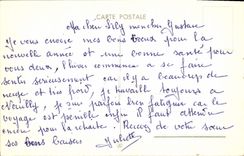 Ma chère Lily mon cher Gustave
CARTE POSTALE
Je vous envoie mes bons vœux pour la
nouvelle année et une bonne santé pour
vous deux, l'hiver commence a se faire
sentir sérieusement car il y a beaucoup de
neige et très froid, je travaille toujours a
Neuilly, je suis parfois bien fatiguée car le
voyage est pénible enfin il faut attendre
encore pour la retraite. Recevez de votre sœur
ses bons baisers Juliette